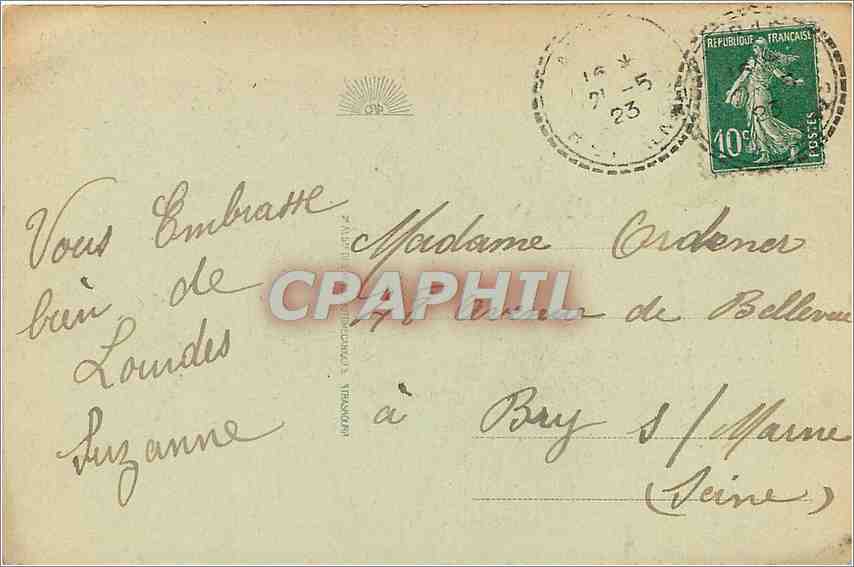 Vous Embrasse
bien de
Lourdes
Suzanne
16 *
21 - 5
23
REPUBLIQUE FRANÇAISE
10c
POSTES
Madame Ordener
avenue de Bellevue
à Bry s/ Marne
(Seine)
STRASBOURG
CPAPHIL